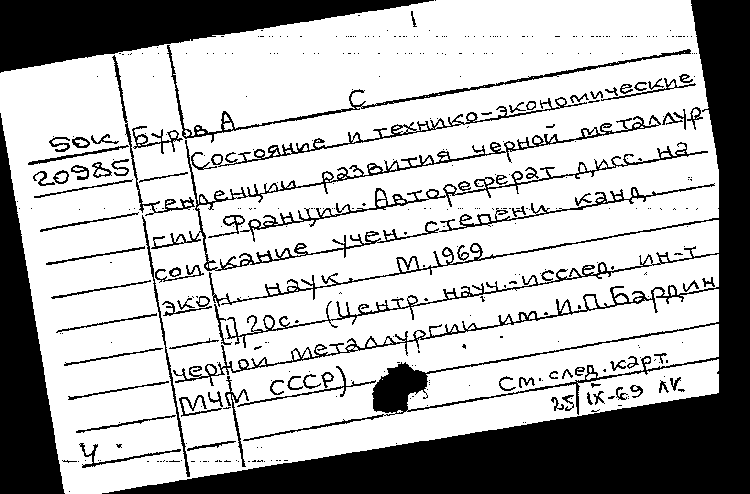 1
50к. Буров, А С
20985 Состояние и технико-экономические
тенденции развития черной металлур-
гии Франции. Автореферат дисс. на
соискание учен. степени канд.
экон. наук. М., 1969.
[1], 20с. (Центр. науч.-исслед. ин-т
черной металлургии им. И.П. Бардин
МЧМ СССР).
См. след. карт.
25/IX-69 ЛК
ч.